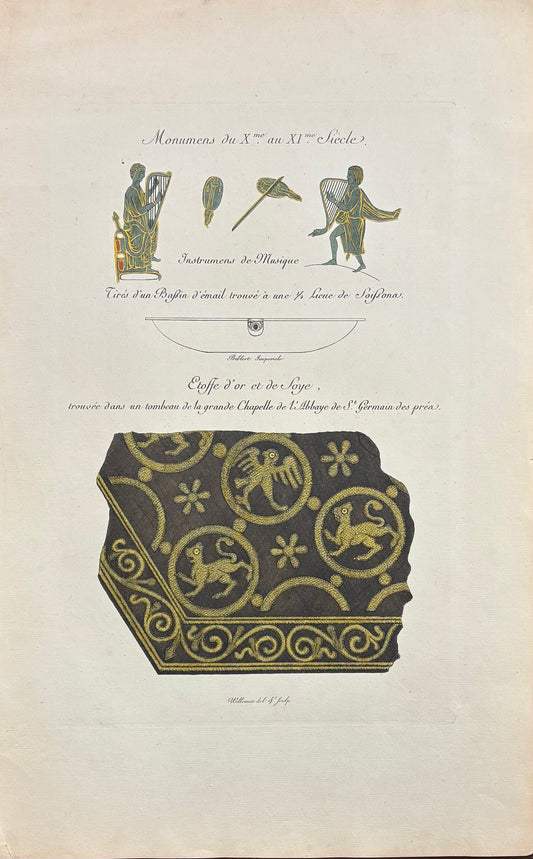 Monumens du X.me au XI.me Siècle.
Instrumens de Musique
Tirés d'un Baſsin d'émail trouvé à une ½ Lieue de Soiſsons.
Bibliot. Imperiale
Etoffe d'or et de Soye,
trouvée dans un tombeau de la grande Chapelle de l'Abbaye de S.t Germain des prés.
Willemin del. et sculp.